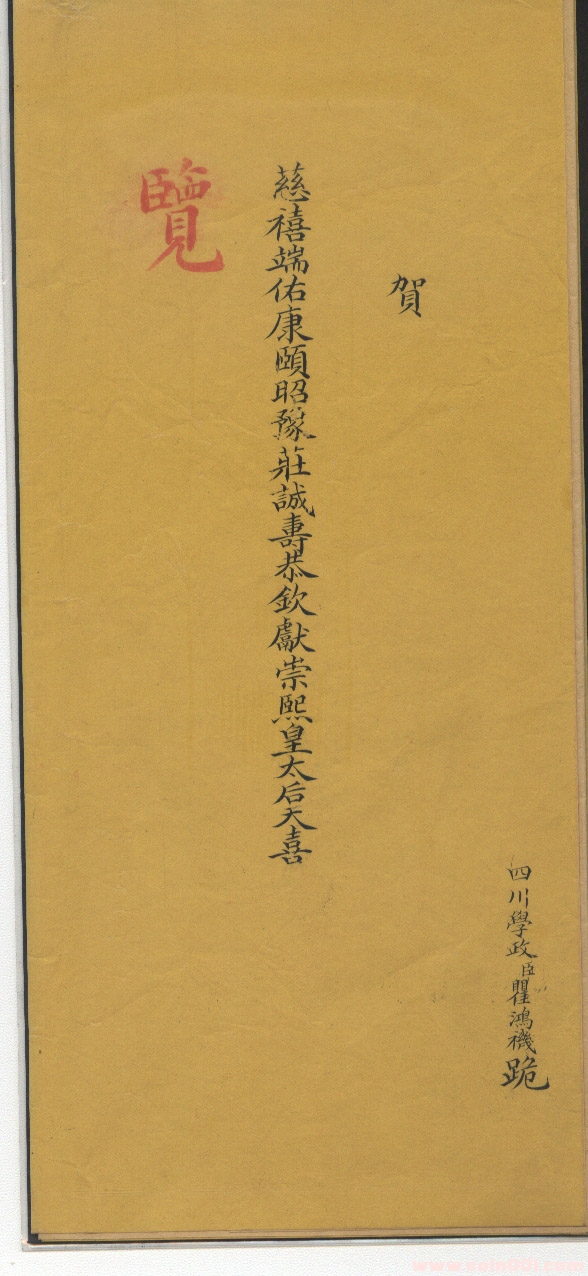 四川學政臣瞿鴻禨跪
賀
慈禧端佑康頤昭豫莊誠壽恭欽獻崇熙皇太后天喜
覽